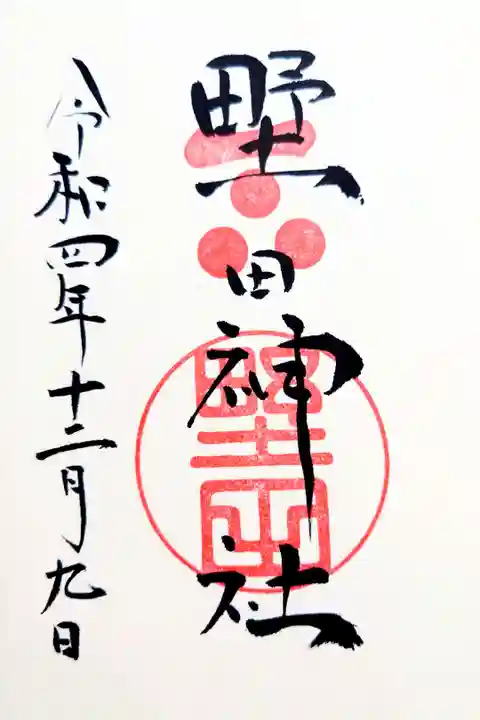 野田神社
令和四年十二月九日